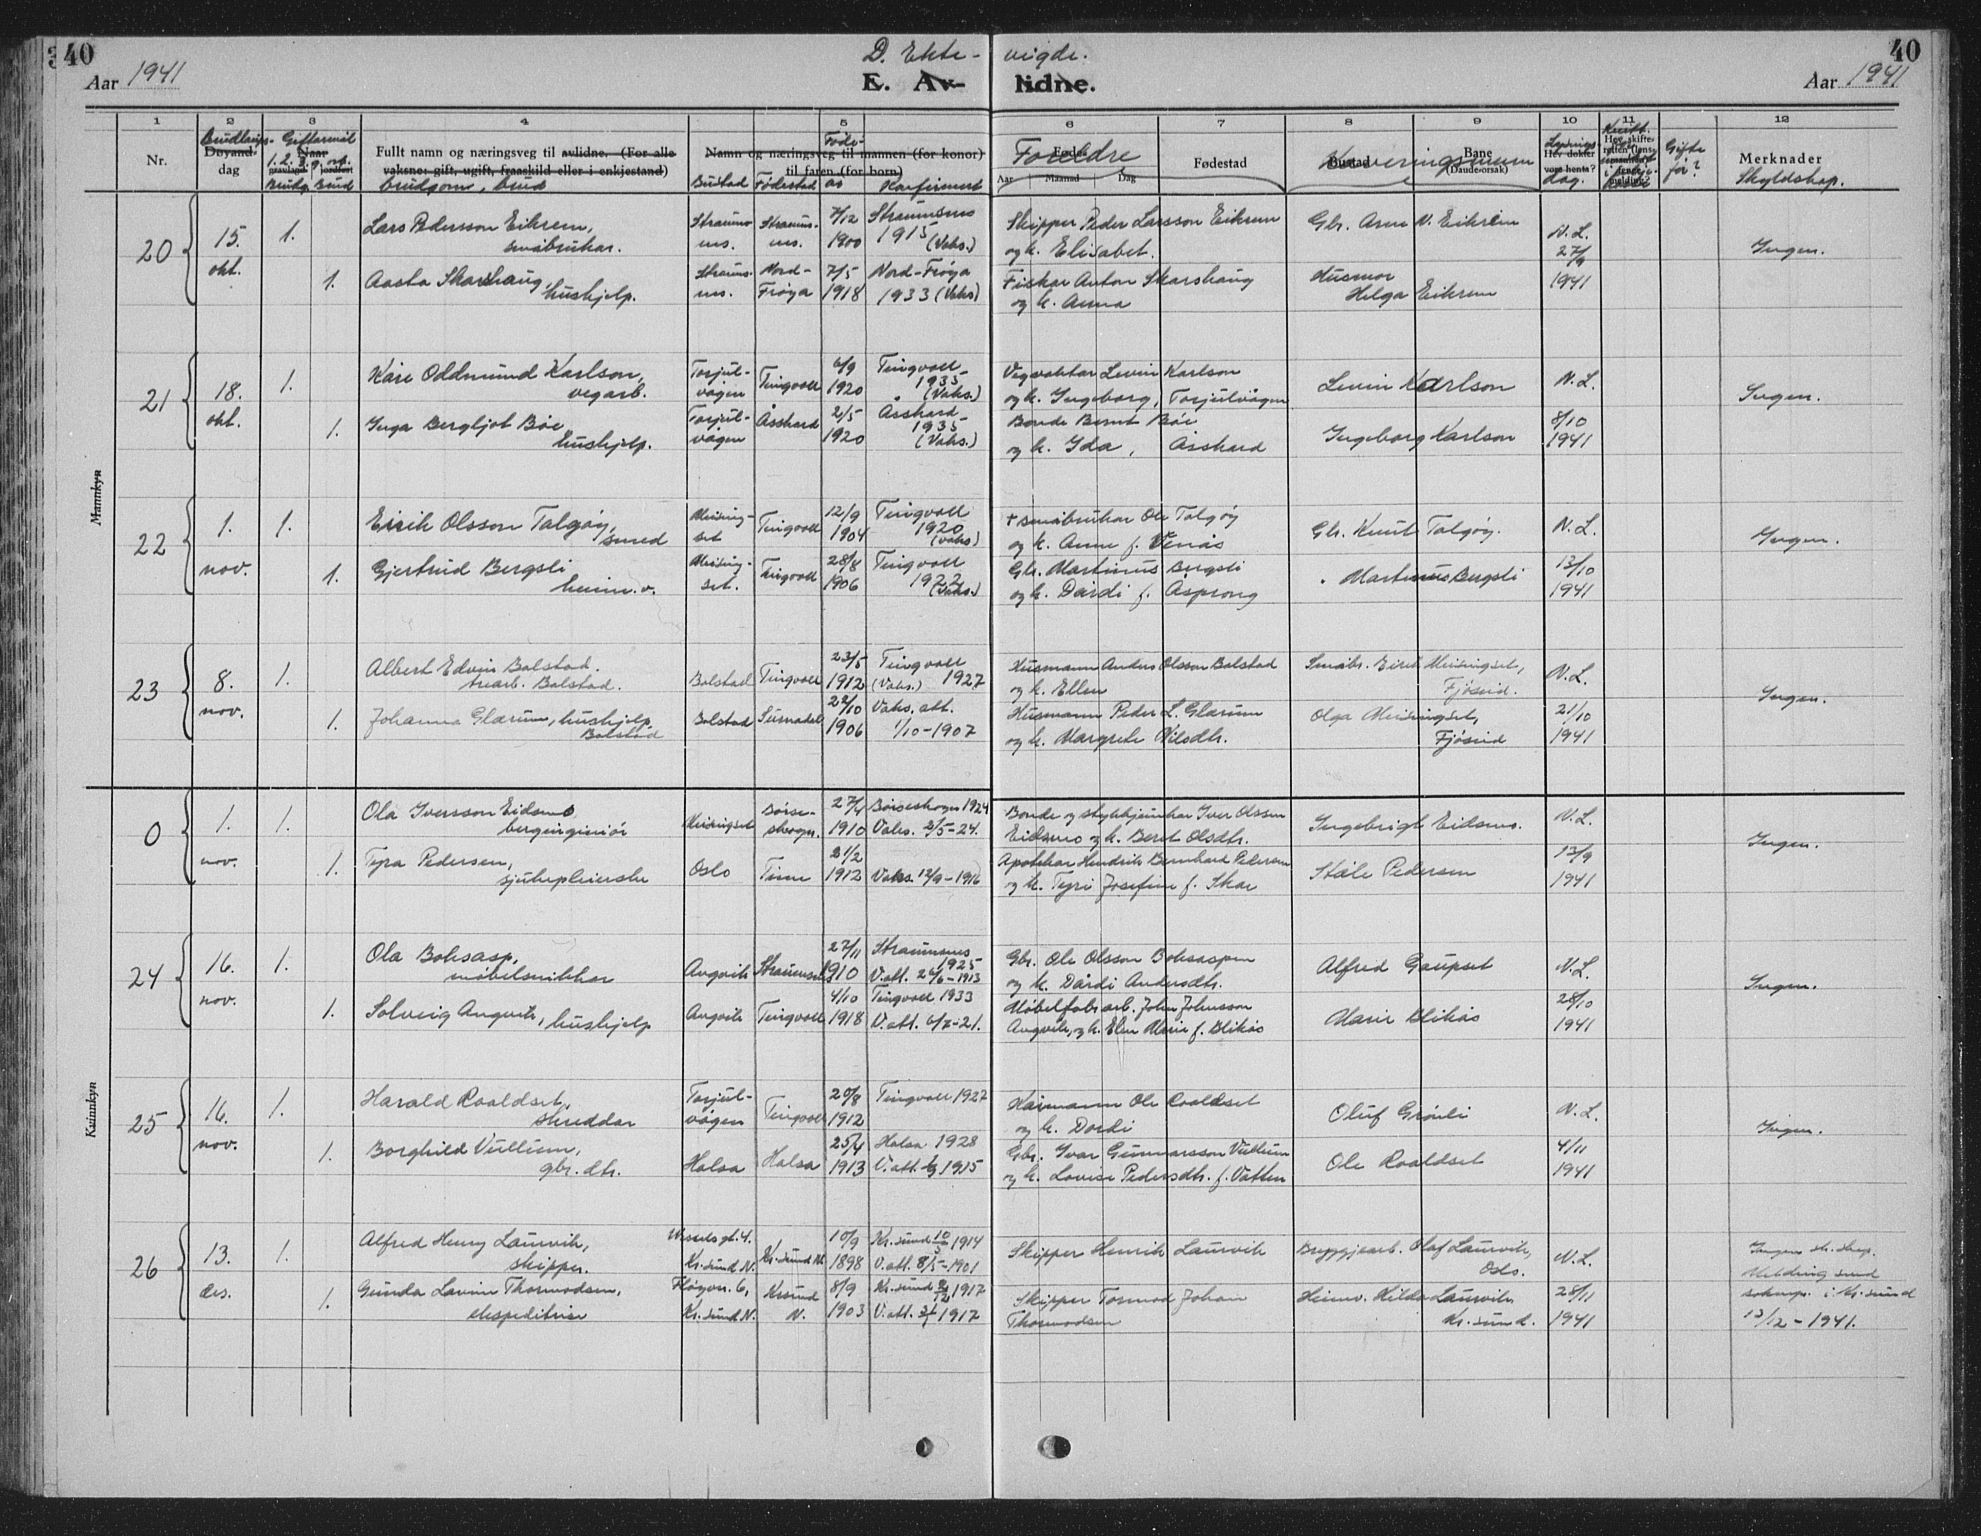 40 D. Ekte- vigde. 40
Aar 1941 E. Av- lidne. Aar 1941
1 2 3 4 5 6 7 8 9 10 11 12
Nr. Brudlaups- Døyand- dag
Giftarmål Naar 1. 2. 3. g. Brudg. Brud
Fullt namn og næringsveg til avlidne. (For alle
vaksne: gift, ugift, fraaskild eller i enkjestand)
brudgom, brud
Namn og næringsveg til mannen (for konor)
til faren (for born)
Bustad Fødestad Føde- år Konfirmert
Foreldre Fødestad
Aar Maanad Dag
Bustad Bane (Daudeorsak)
Lysings dag. Hev dokter vore henta?
Gifte før?
Merknader
Skyldskap.
Mannkyn
20 15. okt. 1. Lars Pedersson Eikrem, småbrukar. Straums- nes. Straums- nes. 7/12 1900 Straumsnes 1915 (Vaks.) Skipper Peder Larsson Eikrem og k. Elisabet. Gbr. Arne N. Eikrem N. L. 27/9 1941 Ingen.
1. Aasta Skarshaug, hushjelp. Straums- nes. Nord- Frøya 7/5 1918 Nord-Frøya 1933 (Vaks) Fiskar Anton Skarshaug og k. Anna Husmor Helga Eikrem
21 18. okt. 1. Kåre Oddmund Karlson, vegarb. Torjul- vågen Tingvoll 6/9 1920 Tingvoll 1935 (Vaks.) Vegvaktar Levin Karlson og k. Ingeborg, Torjulvågen Levin Karlson N. L. 8/10 1941 Ingen.
1. Inga Bergljot Bøe, hushjelp. Torjul- vågen Åsskard 2/5 1920 Åsskard 1935 (Vaks.) Bonde Bernt Bøe og k. Ida, Åsskard Ingeborg Karlson
22 1. nov. 1. Eirik Olsson Talgøy, smed Meising- set Tingvoll 12/9 1904 Tingvoll 1920 (vaks) + småbrukar Ole Talgøy og k. Anne f. Venås Gbr. Knut Talgøy. N. L. 13/10 1941 Ingen.
1. Gjertrud Bergsli heim. v. Meising- set. Tingvoll 28/8 1906 Tingvoll 1922 (Vaks.) Gbr. Martinus Bergsli og k. Dardi f. Aaprong " Martinus Bergsli
23 8. nov. 1. Albert Edvin Bolstad. trearb. Bolstad. Bolstad Tingvoll 23/5 1912 Tingvoll (Vaks.) 1927 Husmann Anders Olsson Bolstad og k. Ellen Småbr. Eirik Meisingset, Fjøseid. N. L. 21/10 1941 Ingen.
1. Johanna Glærum, hushjelp. Bolstad Bolstad Surnadal 22/10 1906 Vaks. att. 1/10-1907 Husmann Peder L. Glærum og k. Margrete Nilsdtr. Olga Meisingset, Fjøseid
0 1. nov. 1. Ola Iversson Eidsmo bergingeniør Meisingset Børse- skogn. 27/4 1910 Børseskogn 1924 Vaks. 2/5-24. Bonde og skysskjeinkar Iver Olsson Eidsmo og k. Beret Olsdtr. Ingebrigt Eidsmo. N. L. 13/9 1941 Ingen.
1. Tyra Pedersen, sjukepleierske Oslo Time 21/2 1912 Vaks. 12/9-1916 Apotekar Hendrik Bernhard Pedersen og k. Tyri Josefine f. Skar Ståle Pedersen
Kvinnkyn
24 16. nov. 1. Ola Boksasp, møbelsnikkar Angvik Straumsnes 27/11 1910 Straumsnes 1925 V. att. 26/6-1913 Gbr. Ole Olsson Boksaspen og k. Dårdi Andersdtr. Alfred Gaupset N. L. 28/10 1941 Ingen.
1. Solveig Angvik, hushjelp Angvik Tingvoll 4/10 1918 Tingvoll 1933 V. att. 6/7-21. Møbelfabr.arb. John Johnsson Angvik, og k. Elen Marie f. Blikås Marie Blikås
25 16. nov. 1. Harald Roaldset, skreddar Torjul- vågen Tingvoll 20/8 1912 Tingvoll 1927 Kårmann Ole Roaldset og k. Dordi Oluf Grønli N. L. 4/11 1941 Ingen.
1. Borghild Vullum, gbr. dtr. Halsa Halsa 25/4 1913 Halsa 1928 V. att 1915 Gbr. Ivar Gunnarsson Vullum og k. Lovise Pedersdtr. f. Vatten Ole Roaldset
26 13. des. 1. Alfred Henry Laurvik, skipper. Wesselsgt. 4. Kr.sund N. Kr.sund N. 10/9 1898 Kr.sund 10/5 1914 V. att. 8/5-1901 Skipper Henrik Laurvik Bryggjearb. Olaf Laurvik, Oslo. N. L. 28/11 1941 Ingen sk.skap. Melding send soknep. i Kr.sund 13/12-1941.
1. Gunda Lavine Thormodsen, ekspeditrise Fløyvn. 6, Kr.sund N. Krsund N. 8/9 1903 Kr.sund 1917 V. att. 1917 Skipper Tormod Johan Thormodsen Heimv. Hilda Laurvik Kr.sund.